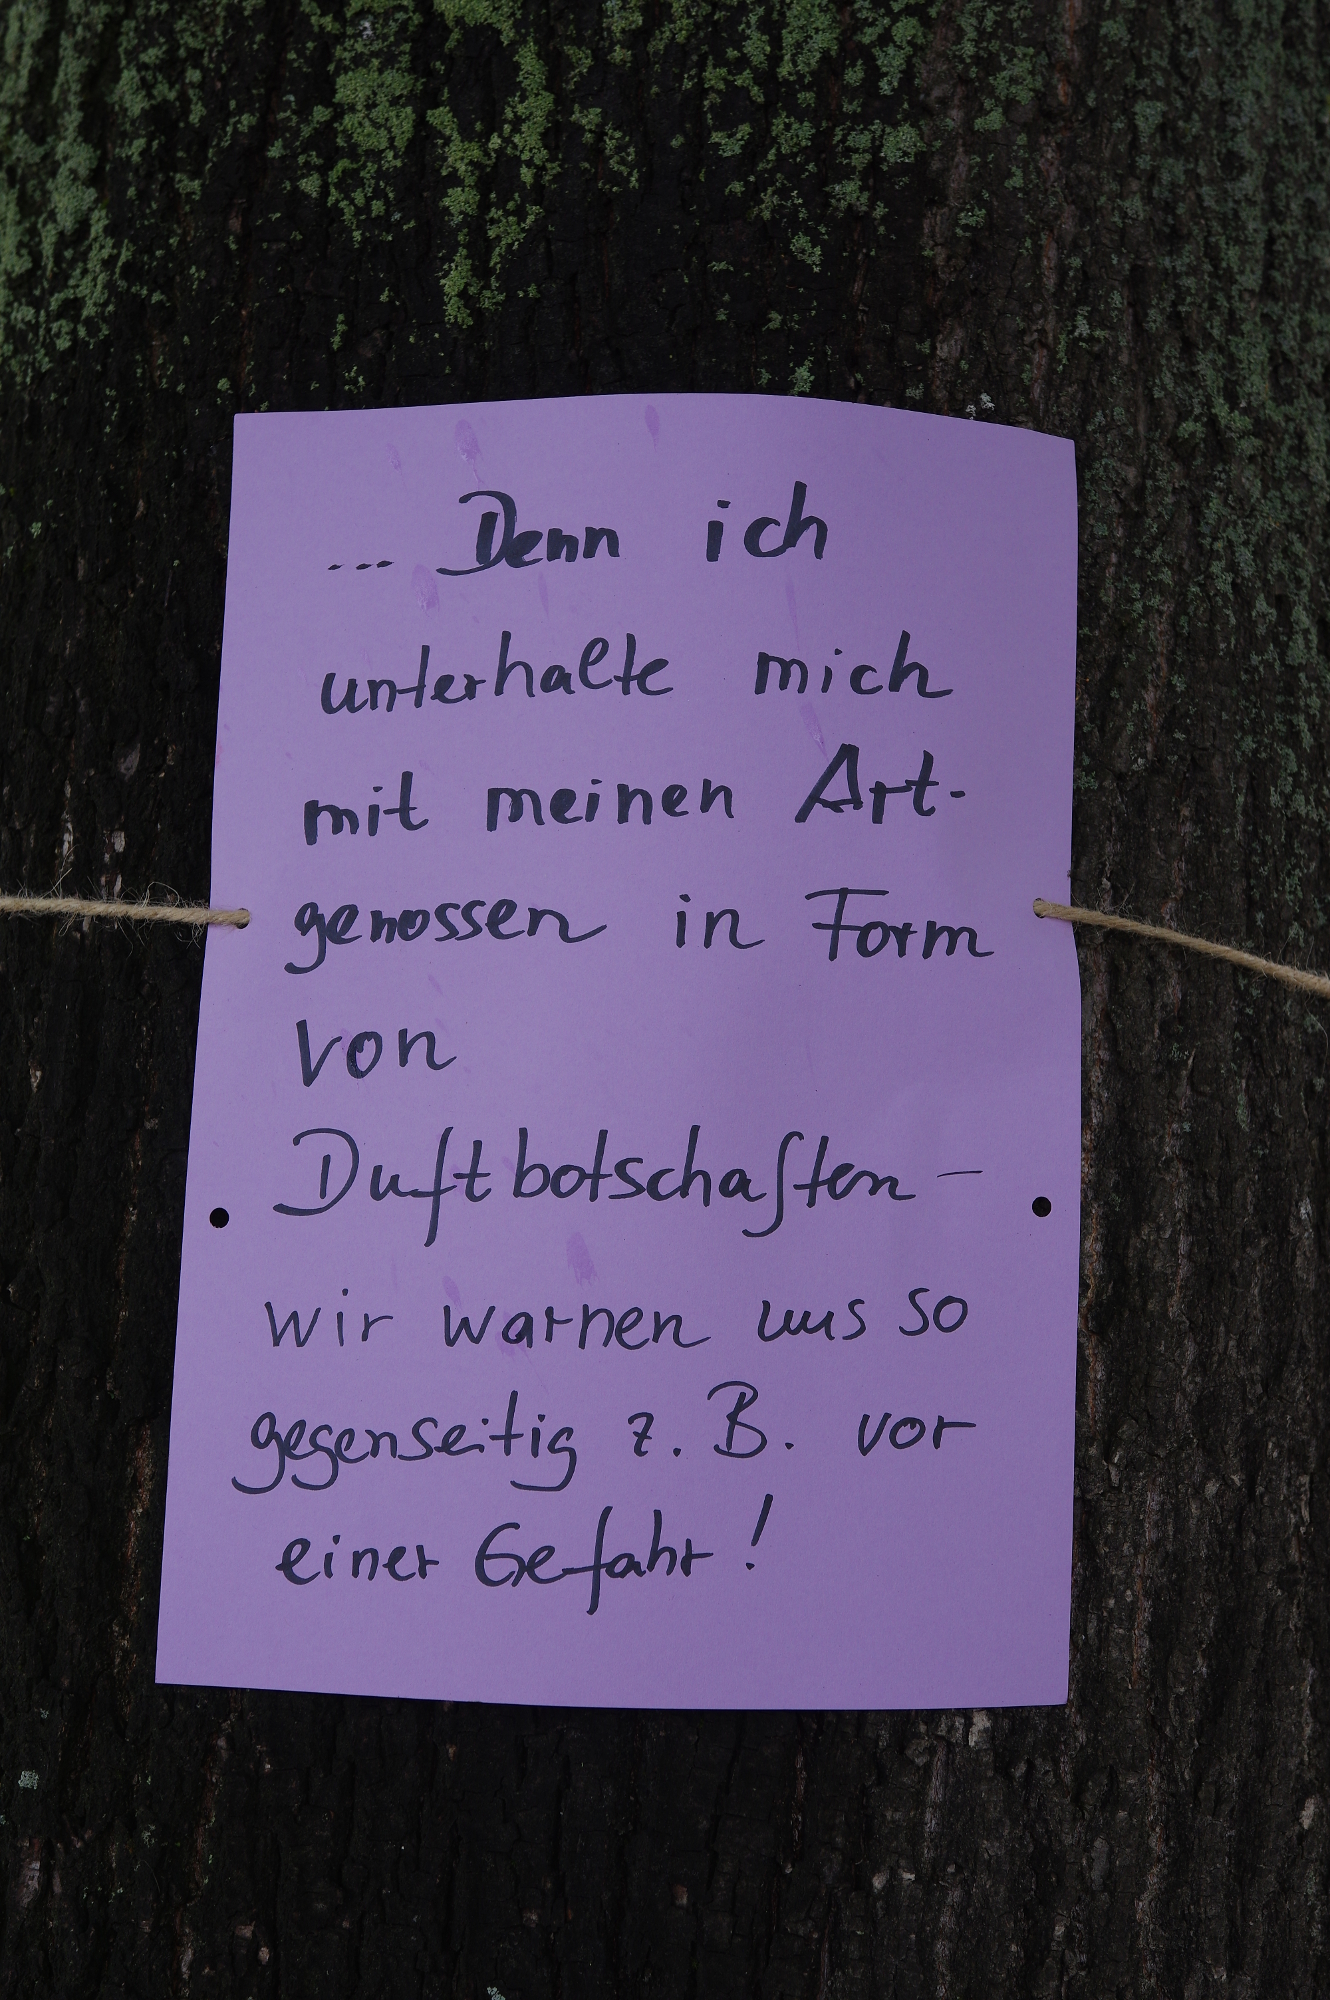 ... Denn ich
unterhalte mich
mit meinen Art-
genossen in Form
von
Duftbotschaften –
wir warnen uns so
gegenseitig z. B. vor
einer Gefahr!